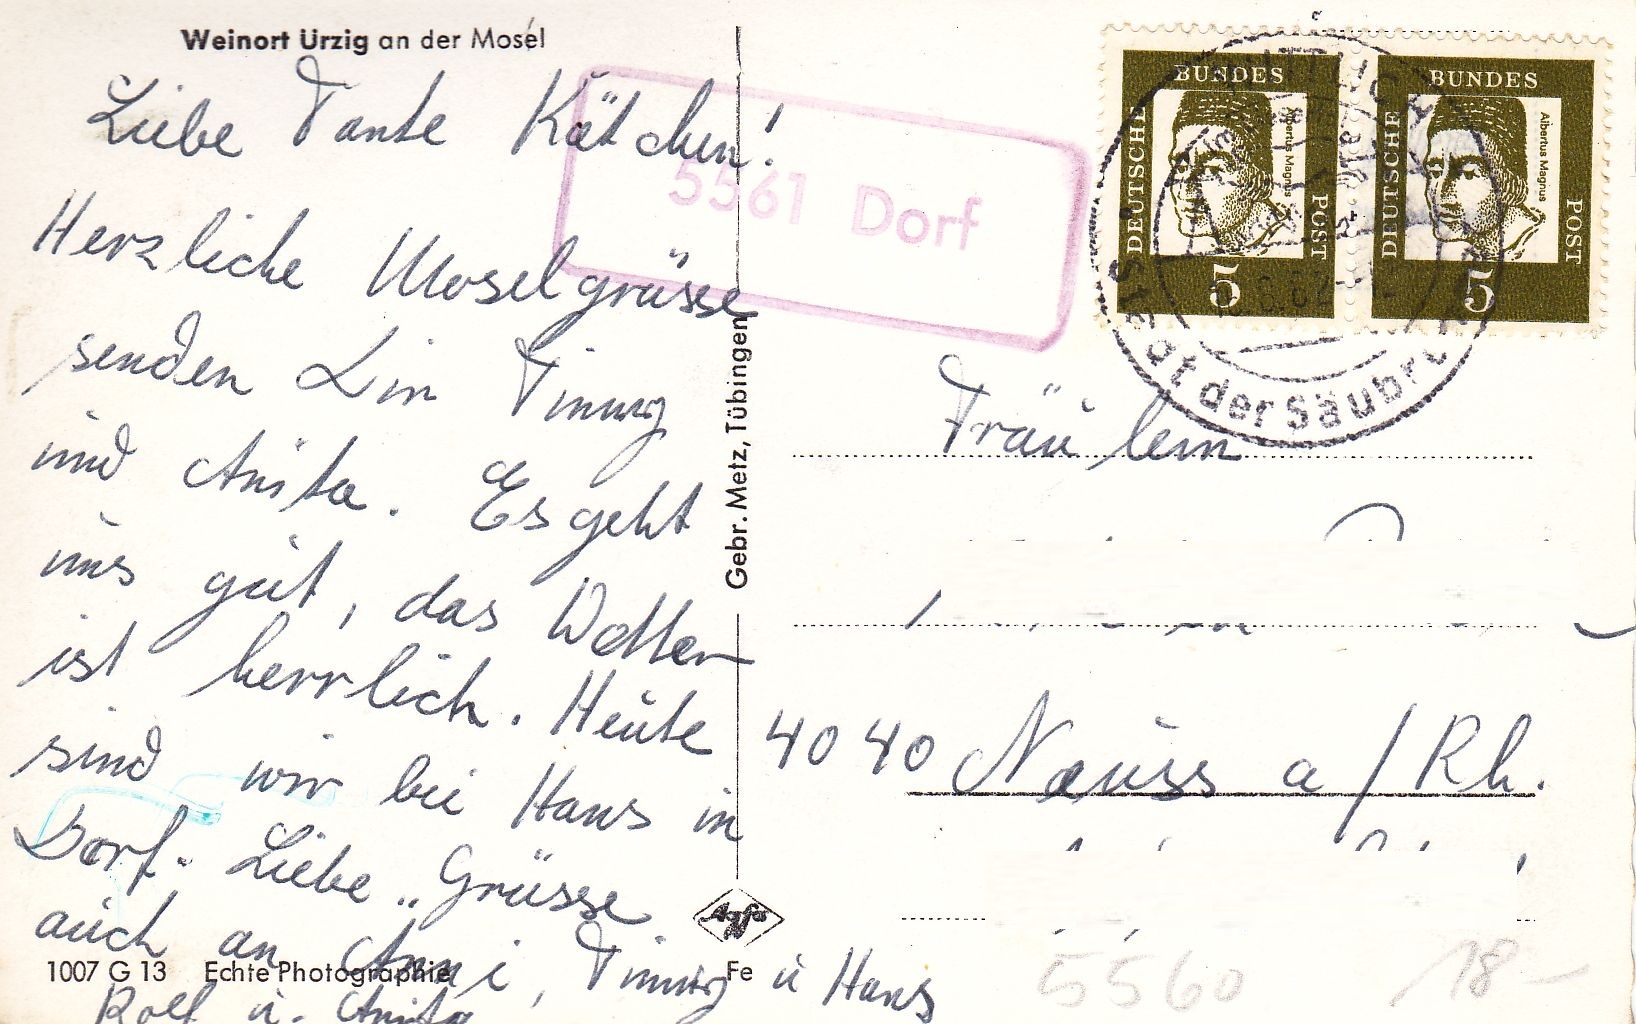 Weinort Ürzig an der Mosel
Liebe Tante Kätchen!
Herzliche Moselgrüsse
senden
und Anita. Es geht
uns gut, das Wetter
ist herrlich. Heute
sind wir bei Hans in
Dorf. Liebe Grüsse
auch an Anni, u Hans
Rolf u. Anita
1007 G 13 Echte Photographie
Fe
Gebr. Metz, Tübingen
Agfa
5561 Dorf
BUNDES
DEUTSCHE
POST
Albertus Magnus
5
BUNDES
DEUTSCHE
POST
Albertus Magnus
5
WITTLICH
Stadt der Säubrenner
Fräulein
4040 Neuss a/Rh.
5560
18-